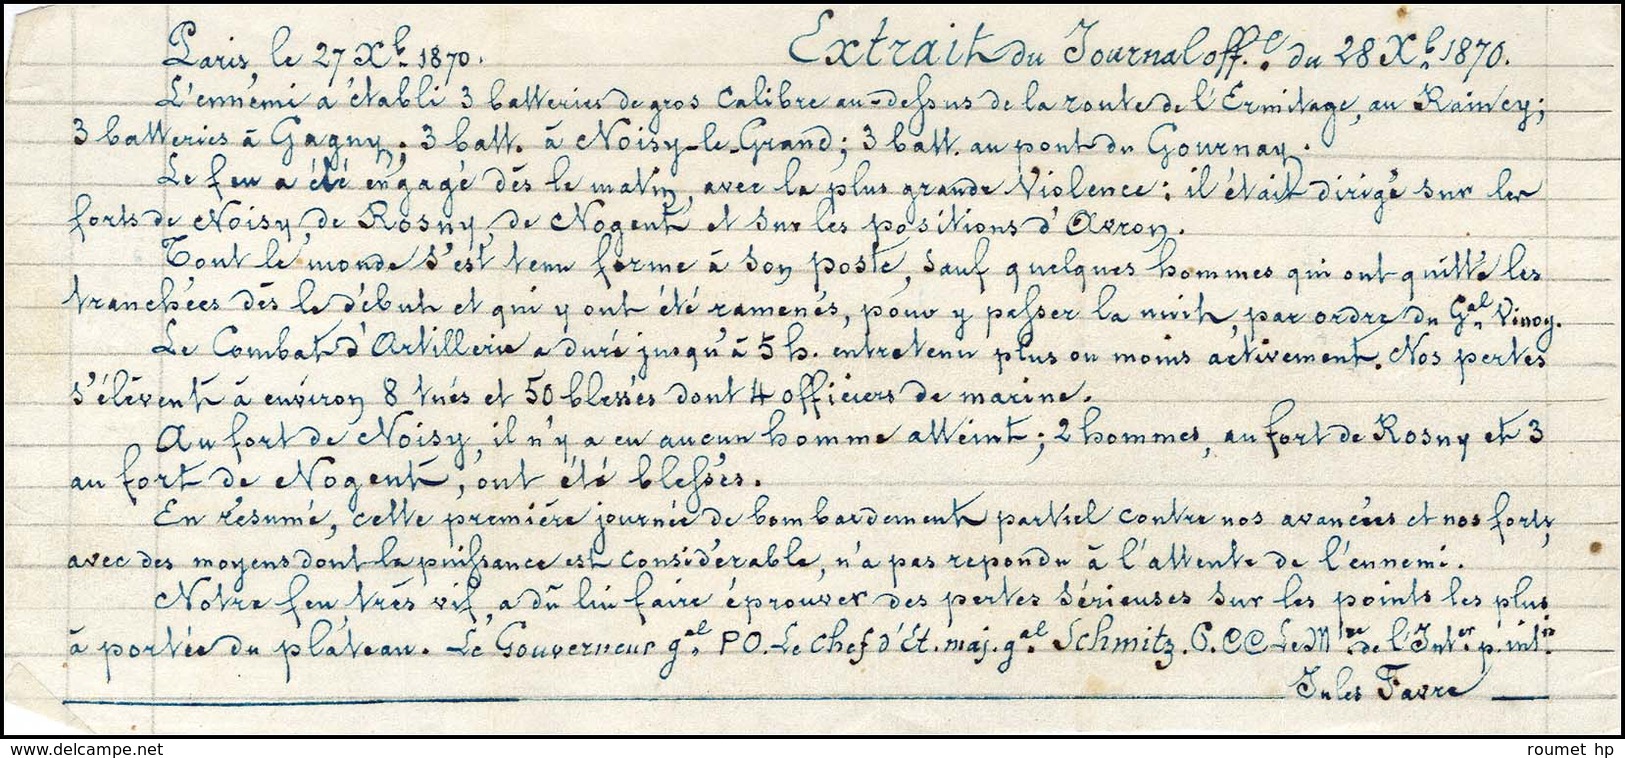 Paris, le 27 Xb. 1870. Extrait du Journal offel. du 28 Xb. 1870.
L'ennemi a établi 3 batteries de gros calibre au-dessus de la route de l'Ermitage, au Raincy;
3 batteries à Gagny; 3 batt. à Noisy-le-Grand; 3 batt. au pont du Gournay.
Le feu a été engagé dès le matin, avec la plus grande violence: il était dirigé sur les
forts de Noisy, de Rosny, de Nogent et sur les positions d'Avron.
Tout le monde s'est tenu ferme à son poste, sauf quelques hommes qui ont quitté les
tranchées dès le début et qui y ont été ramenés, pour y passer la nuit, par ordre du Gal Vinoy.
Le Combat d'Artillerie a duré jusqu'à 5 h. entretenu plus ou moins activement. Nos pertes
s'élèvent à environ 8 tués et 50 blessés dont 4 officiers de marine.
Au fort de Noisy, il n'y a eu aucun homme atteint; 2 hommes, au fort de Rosny et 3
au fort de Nogent, ont été blessés.
En résumé, cette première journée de bombardement partiel contre nos avancées et nos forts,
avec des moyens dont la puissance est considérable, n'a pas repondu à l'attente de l'ennemi.
Notre feu très vif, a dû lui faire éprouver des pertes sérieuses sur les points les plus
à portée du plateau. Le Gouverneur gal. PO. Le chef d'Et. maj. gal. Schmitz. P.CC Le Mre de l'Inter. p. intim
Jules Favre
www.delcampe.net
roumet hp